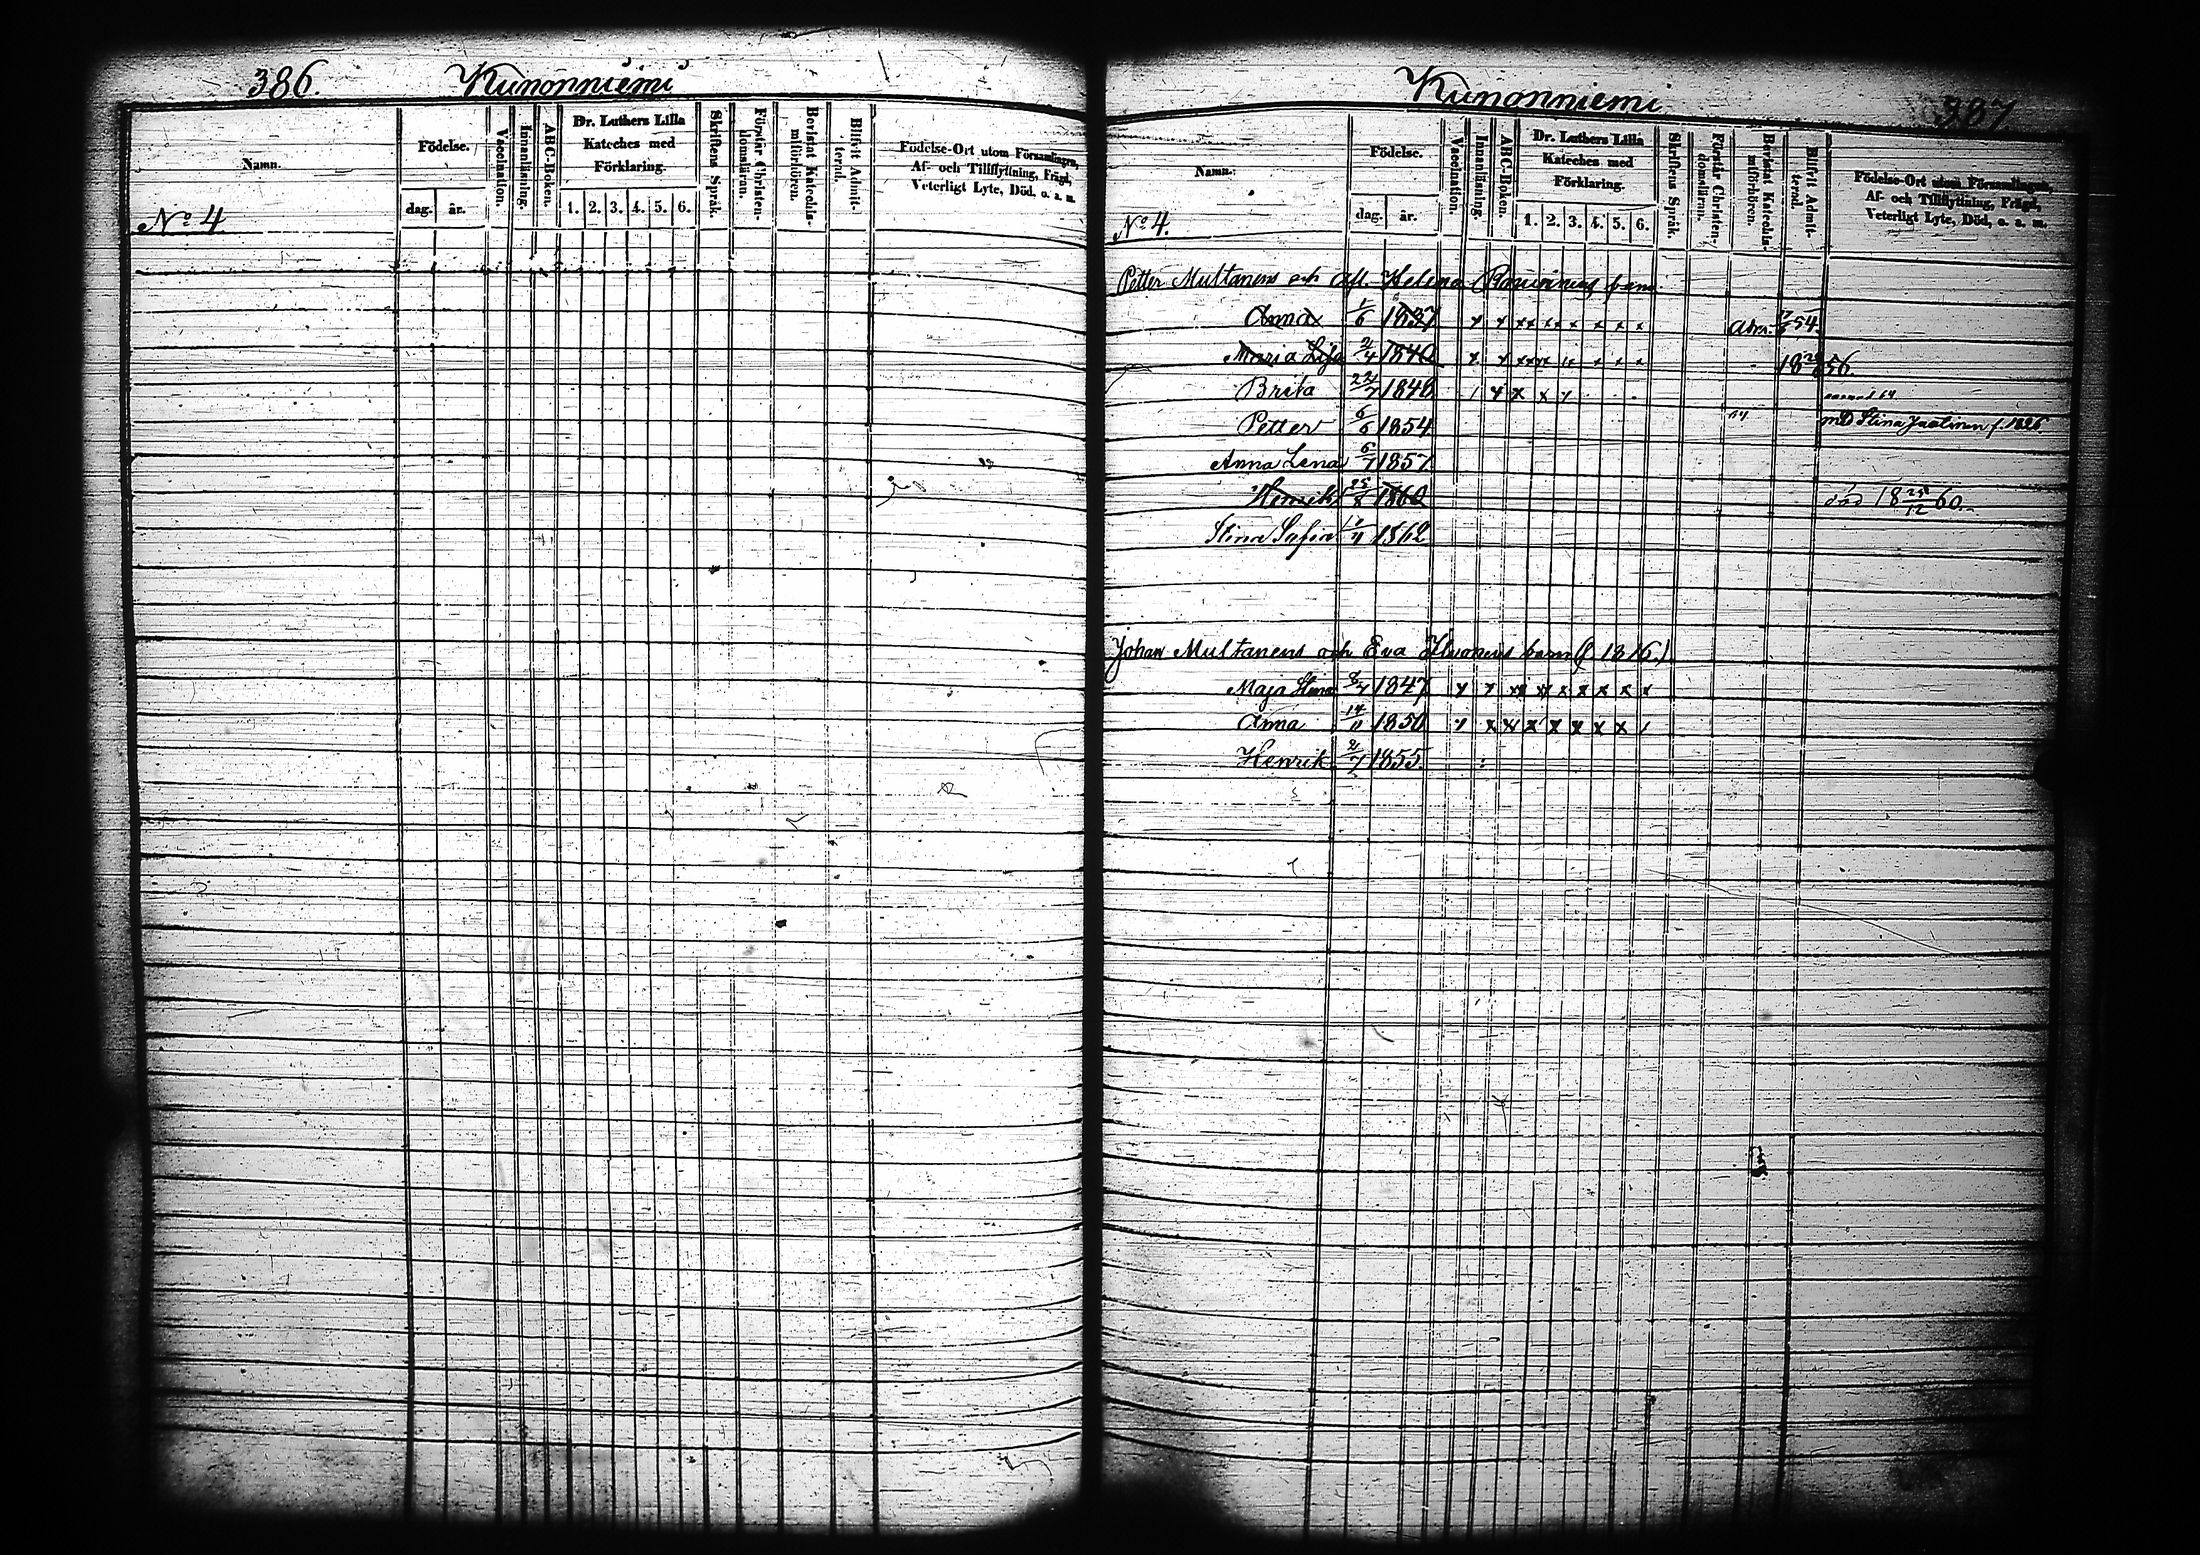 386. Kunonniemi
Namn.
Födelse.
dag. år.
Vaccination.
Innanläsning.
ABC-Boken.
Dr. Luthers Lilla
Kateches med
Förklaring.
1. 2. 3. 4. 5. 6.
Skriftens Språk.
Förstår Christen-
domsläran.
Bevistat Katechis-
miförhören.
Blifvit Admit-
terad.
Födelse-Ort utom Församlingen,
Af- och Tillflyttning, Frägd,
Veterligt Lyte, Död, o. s. m.
No 4
Kunonniemi 387
Namn.
Födelse.
dag. år.
Vaccination.
Innanläsning.
ABC-Boken.
Dr. Luthers Lilla
Kateches med
Förklaring.
1. 2. 3. 4. 5. 6.
Skriftens Språk.
Förstår Christen-
domsläran.
Bevistat Katechis-
miförhören.
Blifvit Admit-
terad.
Födelse-Ort utom Församlingen,
Af- och Tillflyttning, Frägd,
Veterligt Lyte, Död, o. s. m.
No 4.
Petter Multanens och Afl. Helena barn
Anna 1/6 1837 54.
Maria Lisa 2/4 1840 18 56.
Brita 22/7 1848
Petter 6/6 1854 med Stina f. 1826.
Anna Lena 6/7 1857
Henrik 25/8 1860 död 18 25/12 60.
Stina Sofia 1862
Johan Multanens och Eva barn (f 1816.)
Maja Stina 1847
Anna 14/11 1850
Henrik 2/7 1855.